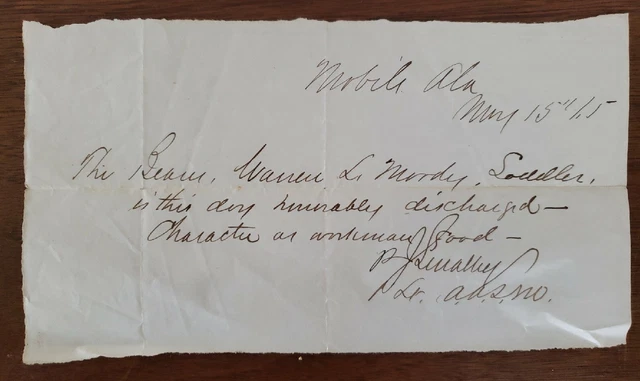 Mobile Ala
May 15th /65
The Bearer, Warren L. Moody, Saddler,
is this day honorably discharged —
Character as workman good —
Lt. A.A.Q.M.